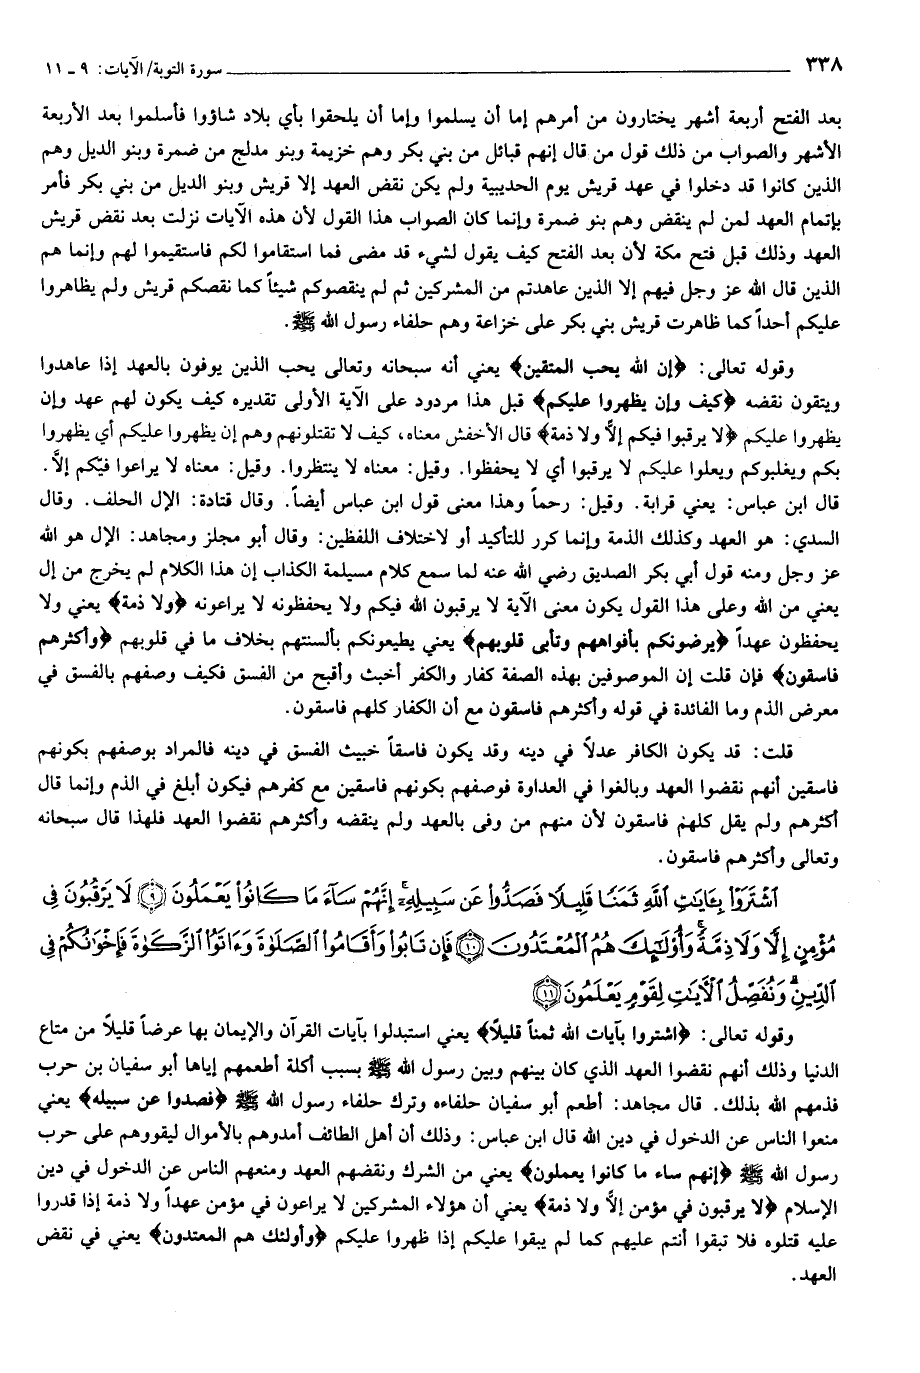 ٣٣٨ سورة التوبة/ الآيات: ٩ ـ ١١
بعد الفتح أربعة أشهر يختارون من أمرهم إما أن يسلموا وإما أن يلحقوا بأي بلاد شاؤوا فأسلموا بعد الأربعة
الأشهر والصواب من ذلك قول من قال إنهم قبائل من بني بكر وهم خزيمة وبنو مدلج من ضمرة وبنو الديل وهم
الذين كانوا قد دخلوا في عهد قريش يوم الحديبية ولم يكن نقض العهد إلا قريش وبنو الديل من بني بكر فأمر
بإتمام العهد لمن لم ينقض وهم بنو ضمرة وإنما كان الصواب هذا القول لأن هذه الآيات نزلت بعد نقض قريش
العهد وذلك قبل فتح مكة لأن بعد الفتح كيف يقول لشيء قد مضى فما استقاموا لكم فاستقيموا لهم وإنما هم
الذين قال الله عز وجل فيهم إلا الذين عاهدتم من المشركين ثم لم ينقصوكم شيئاً كما نقصكم قريش ولم يظاهروا
عليكم أحداً كما ظاهرت قريش بني بكر على خزاعة وهم حلفاء رسول الله ﷺ.
وقوله تعالى: ﴿إن الله يحب المتقين﴾ يعني أنه سبحانه وتعالى يحب الذين يوفون بالعهد إذا عاهدوا
ويتقون نقضه ﴿كيف وإن يظهروا عليكم﴾ قبل هذا مردود على الآية الأولى تقديره كيف يكون لهم عهد وإن
يظهروا عليكم ﴿لا يرقبوا فيكم إلاًّ ولا ذمة﴾ قال الأخفش معناه، كيف لا تقتلونهم وهم إن يظهروا عليكم أي يظهروا
بكم ويغلبوكم ويعلوا عليكم لا يرقبوا أي لا يحفظوا. وقيل: معناه لا ينتظروا. وقيل: معناه لا يراعوا فيّكم إلاًّ.
قال ابن عباس: يعني قرابة. وقيل: رحماً وهذا معنى قول ابن عباس أيضاً. وقال قتادة: الإل الحلف. وقال
السدي: هو العهد وكذلك الذمة وإنما كرر للتأكيد أو لاختلاف اللفظين: وقال أبو مجلز ومجاهد: الإل هو الله
عز وجل ومنه قول أبي بكر الصديق رضي الله عنه لما سمع كلام مسيلمة الكذاب إن هذا الكلام لم يخرج من إل
يعني من الله وعلى هذا القول يكون معنى الآية لا يرقبون الله فيكم ولا يحفظونه لا يراعونه ﴿ولا ذمة﴾ يعني ولا
يحفظون عهداً ﴿يرضونكم بأفواههم وتأبى قلوبهم﴾ يعني يطيعونكم بألسنتهم بخلاف ما في قلوبهم ﴿وأكثرهم
فاسقون﴾ فإن قلت إن الموصوفين بهذه الصفة كفار والكفر أخبث وأقبح من الفسق فكيف وصفهم بالفسق في
معرض الذم وما الفائدة في قوله وأكثرهم فاسقون مع أن الكفار كلهم فاسقون.
قلت: قد يكون الكافر عدلاً في دينه وقد يكون فاسقاً خبيث الفسق في دينه فالمراد بوصفهم بكونهم
فاسقين أنهم نقضوا العهد وبالغوا في العداوة فوصفهم بكونهم فاسقين مع كفرهم فيكون أبلغ في الذم وإنما قال
أكثرهم ولم يقل كلهم فاسقون لأن منهم من وفى بالعهد ولم ينقضه وأكثرهم نقضوا العهد فلهذا قال سبحانه
وتعالى وأكثرهم فاسقون.
ٱشْتَرَوْا۟ بِـَٔايَـٰتِ ٱللَّهِ ثَمَنًا قَلِيلًا فَصَدُّوا۟ عَن سَبِيلِهِۦٓ ۚ إِنَّهُمْ سَآءَ مَا كَانُوا۟ يَعْمَلُونَ ۝٩ لَا يَرْقُبُونَ فِى
مُؤْمِنٍ إِلًّا وَلَا ذِمَّةً ۚ وَأُو۟لَـٰٓئِكَ هُمُ ٱلْمُعْتَدُونَ ۝١٠ فَإِن تَابُوا۟ وَأَقَامُوا۟ ٱلصَّلَوٰةَ وَءَاتَوُا۟ ٱلزَّكَوٰةَ فَإِخْوَٰنُكُمْ فِى
ٱلدِّينِ ۗ وَنُفَصِّلُ ٱلْـَٔايَـٰتِ لِقَوْمٍ يَعْلَمُونَ ۝١١
وقوله تعالى: ﴿اشتروا بآيات الله ثمناً قليلاً﴾ يعني استبدلوا بآيات القرآن والإيمان بها عرضاً قليلاً من متاع
الدنيا وذلك أنهم نقضوا العهد الذي كان بينهم وبين رسول الله ﷺ بسبب أكلة أطعمهم إياها أبو سفيان بن حرب
فذمهم الله بذلك. قال مجاهد: أطعم أبو سفيان حلفاءه وترك حلفاء رسول الله ﷺ ﴿فصدوا عن سبيله﴾ يعني
منعوا الناس عن الدخول في دين الله قال ابن عباس: وذلك أن أهل الطائف أمدوهم بالأموال ليقووهم على حرب
رسول الله ﷺ ﴿إنهم ساء ما كانوا يعملون﴾ يعني من الشرك ونقضهم العهد ومنعهم الناس عن الدخول في دين
الإسلام ﴿لا يرقبون في مؤمن إلاًّ ولا ذمة﴾ يعني أن هؤلاء المشركين لا يراعون في مؤمن عهداً ولا ذمة إذا قدروا
عليه قتلوه فلا تبقوا أنتم عليهم كما لم يبقوا عليكم إذا ظهروا عليكم ﴿وأولئك هم المعتدون﴾ يعني في نقض
العهد.